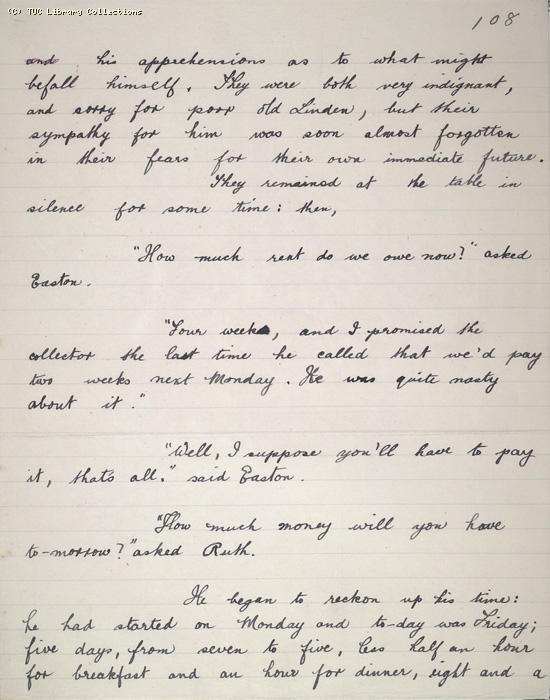 (C) TUC Library Collections
108
and his apprehensions as to what might
befall himself. They were both very indignant,
and sorry for poor old Linden, but their
sympathy for him was soon almost forgotten
in their fears for their own immediate future.
They remained at the table in
silence for some time: then,
"How much rent do we owe now?" asked
Easton.
"Four weeks, and I promised the
collector the last time he called that we'd pay
two weeks next Monday. He was quite nasty
about it."
"Well, I suppose you'll have to pay
it, that's all." said Easton.
"How much money will you have
to-morrow?" asked Ruth.
He began to reckon up his time:
he had started on Monday and to-day was Friday;
five days, from seven to five, less half an hour
for breakfast and an hour for dinner, eight and a